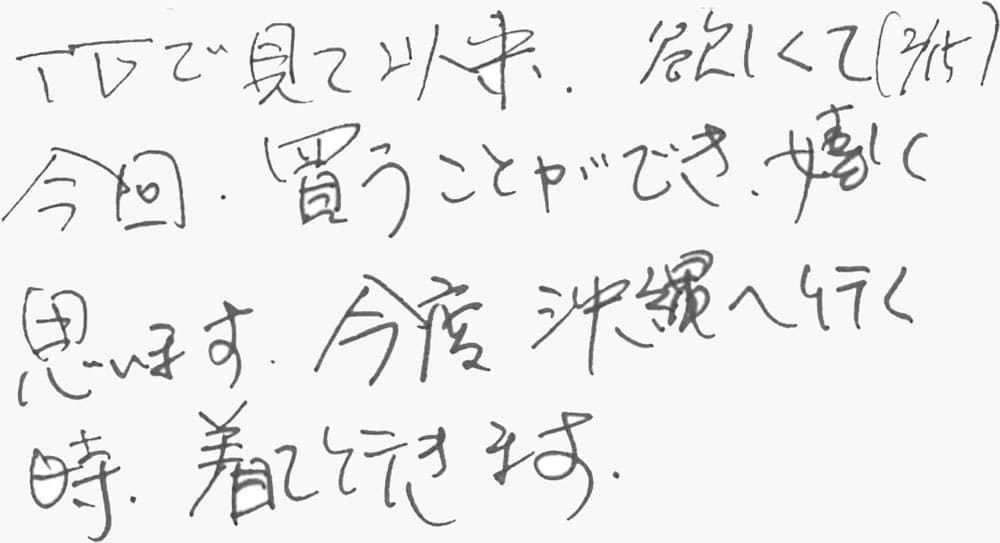 TVで見て以来、欲しくて(2/15)
今回、買うことができ、嬉しく
思います。今度沖縄へ行く
時、着て行きます。